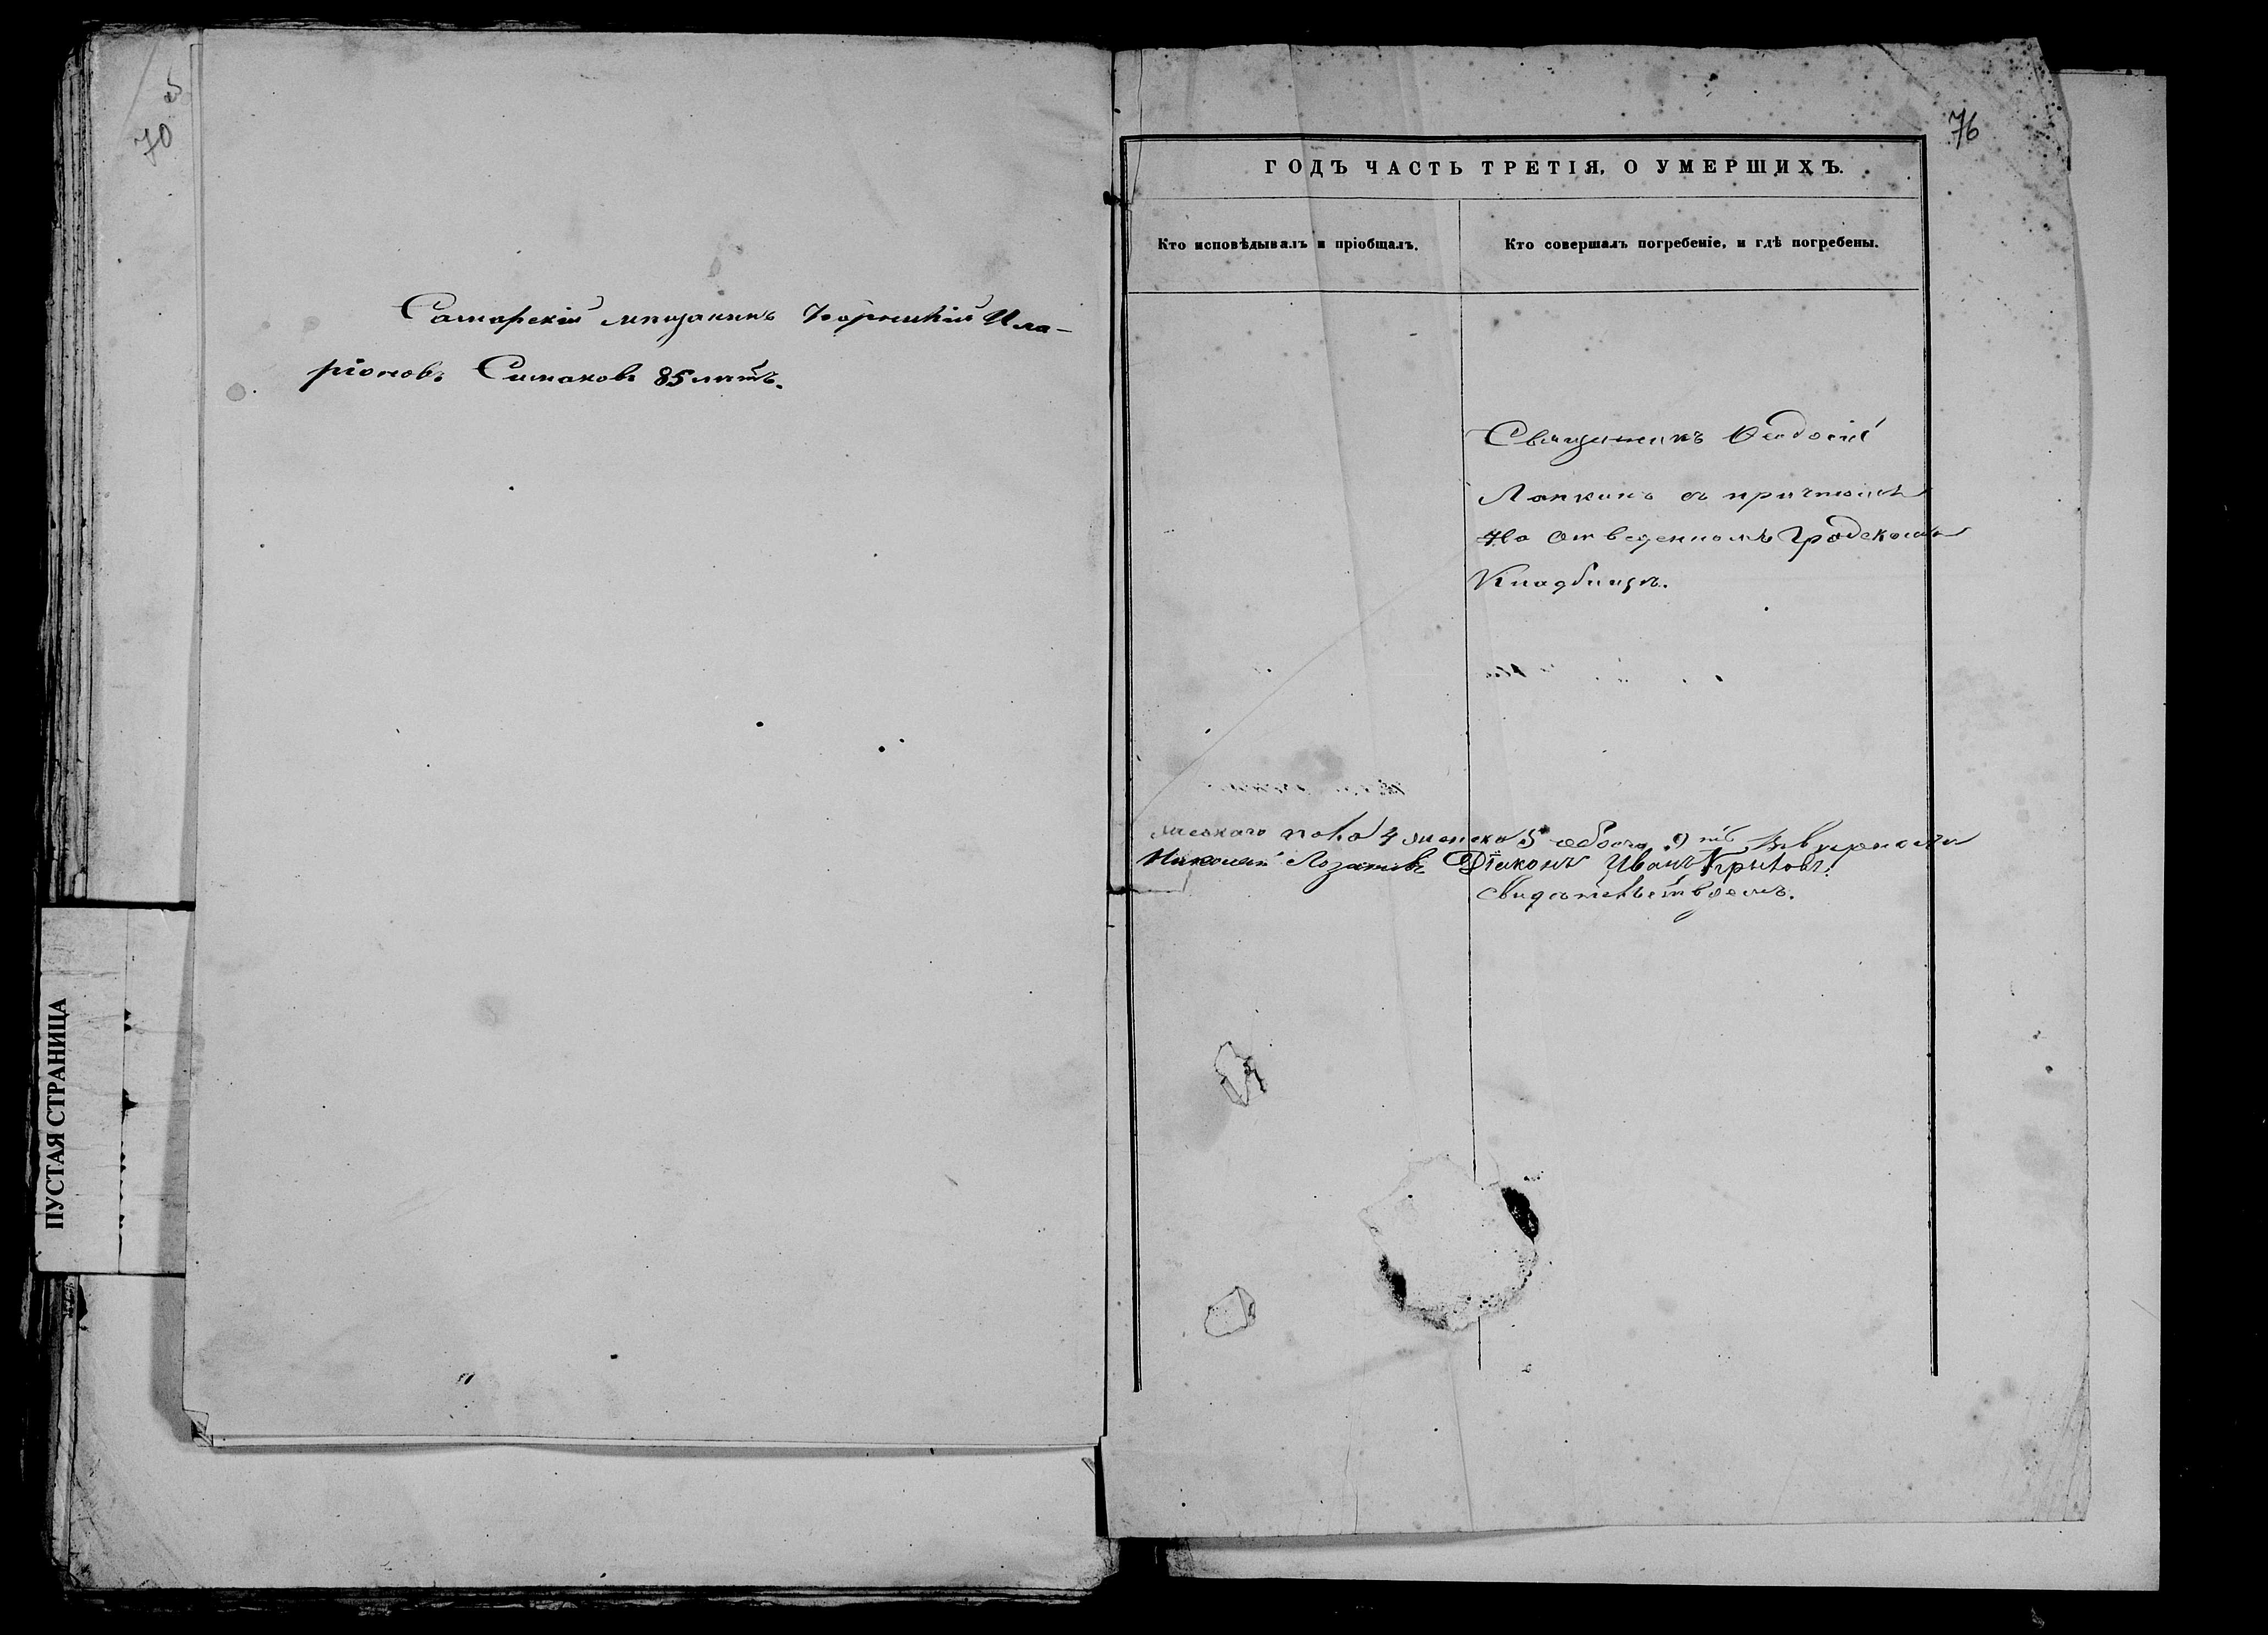 70
Самарскій мѣщанинъ Корнилій Ила-
ріоновъ Симаковъ 85 лѣтъ.
ПУСТАЯ СТРАНИЦА
76
ГОДЪ ЧАСТЬ ТРЕТІЯ, О УМЕРШИХЪ.
Кто исповѣдывалъ и пріобщалъ.
Кто совершалъ погребеніе, и гдѣ погребены.
Священникъ Феодосій
Лапкинъ съ причтомъ
на отведенномъ градскомъ
Кладбищѣ.
мужескаго пола 4 женска 5 обоего 9 въ вѣрности
Николай Діаконъ Иванъ
свидѣтельствуемъ.